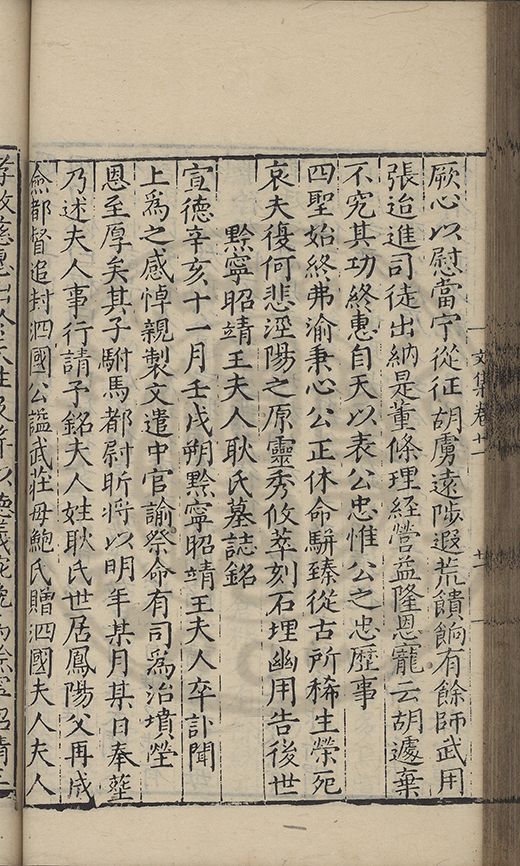 文集卷廿一
廿一
厥心以慰當宁從征胡虜遠陟遐荒饋餉有餘師武用
張迨進司徒出納是董條理經營益隆恩寵云胡遽棄
不究其功終惠自天以表公忠惟公之忠歷事
四聖始終弗渝秉心公正休命駢臻從古所稀生榮死
哀夫復何悲涇陽之原靈秀攸萃刻石埋幽用告後世
黔寧昭靖王夫人耿氏墓誌銘
宣德辛亥十一月壬戌朔黔寧昭靖王夫人卒訃聞
上為之感悼親製文遣中官諭祭命有司為治墳塋
恩至厚矣其子駙馬都尉昕將以明年某月某日奉塟
乃述夫人事行請予銘夫人姓耿氏世居鳳陽父再成
僉都督追封泗國公謚武莊母鮑氏贈泗國夫人夫人